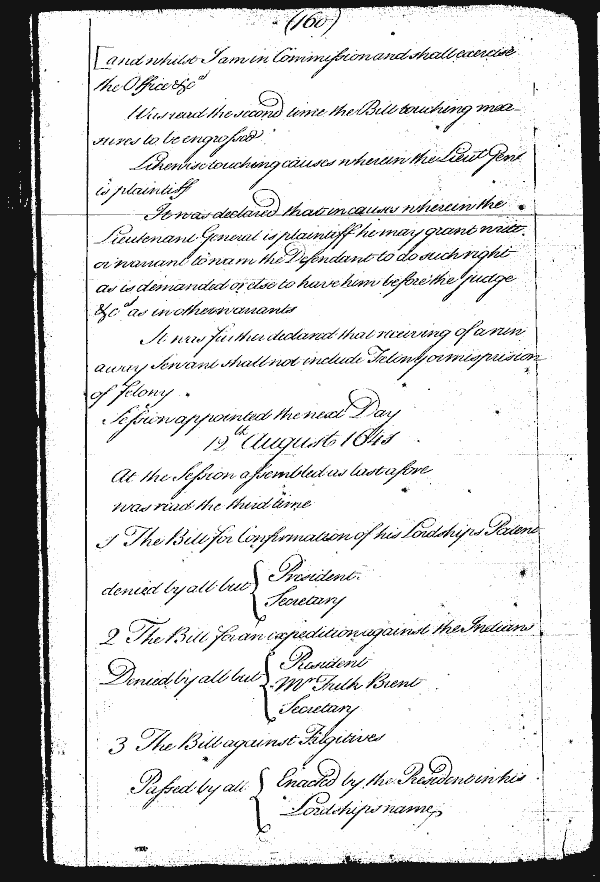 (160)
[and whilst I am in Commission and shall exercise
the Office &c.ᵃ
Was read the second time the Bill touching mea-
sures to be engrossed
Likewise touching causes wherein the Lieut Genl
is plaintiff
It was declared that in causes wherein the
Lieutenant General is plaintiff he may grant writt
or warrant to warn the Defendant to do such right
as is demanded or else to have him before the Judge
&c.ᵃ as in other warrants
It was further declared that receiving of a run
away Servant shall not include Felony or misprision
of felony
Session appointed the next Day
12th August 164
At the Session assembled as last afore
was read the third time
1 The Bill for Confirmation of his Lordships Patent
denied by all but { President.
Secretary
2 The Bill for an expedition against the Indians
Denied by all but { President
Mr Fulk Brent
Secretary
3 The Bill against Fugitives
Passed by all { Enacted by the President in his
Lordships name,